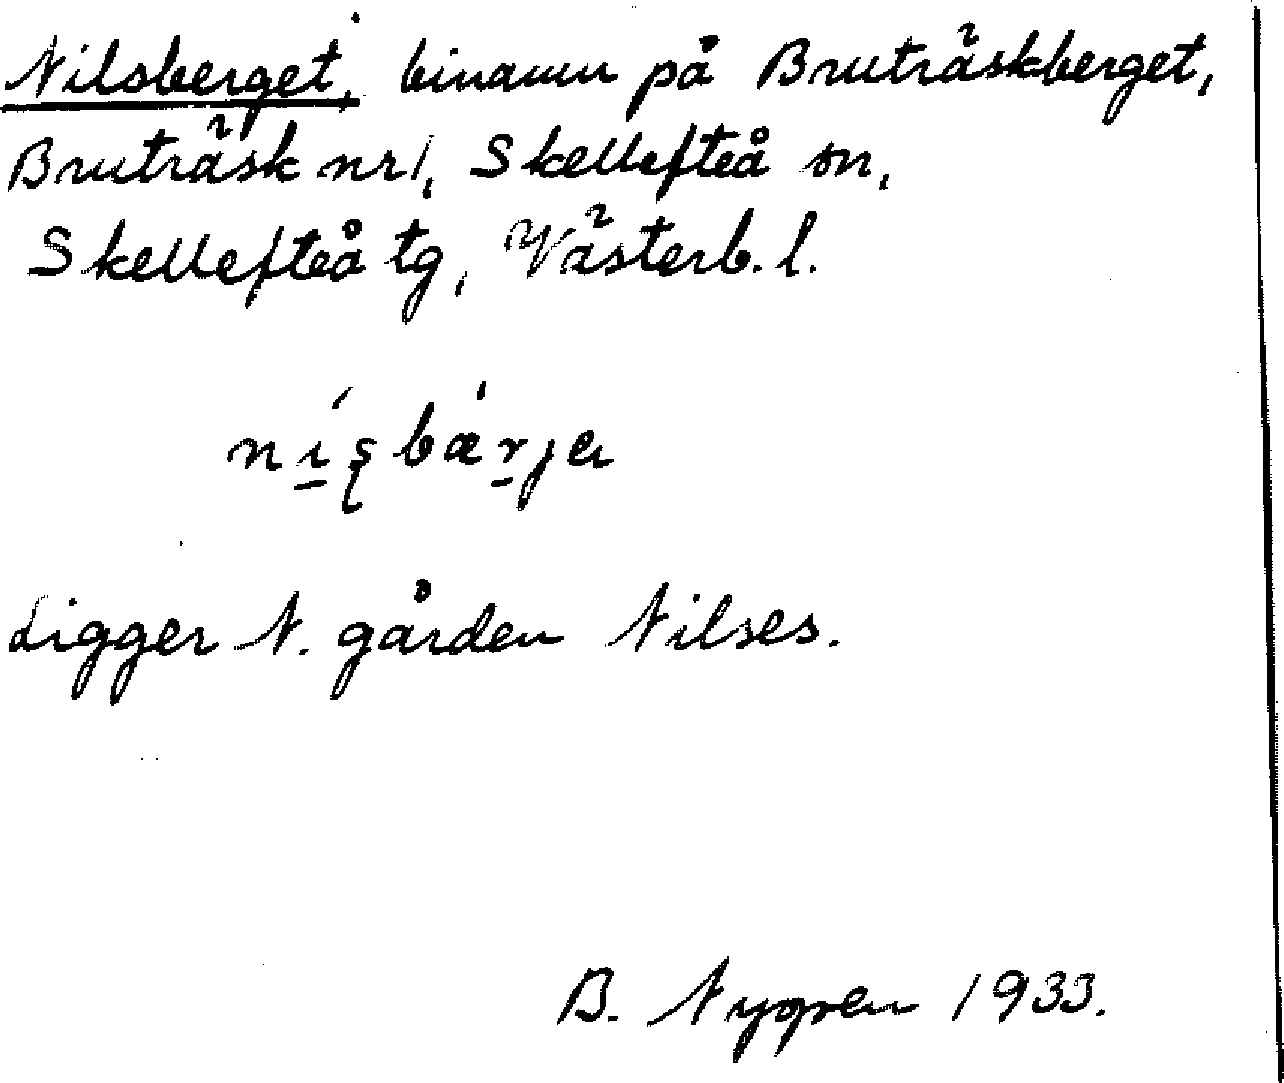 Nilsberget, binamn på Bruträskberget,
Bruträsk nr 1, Skellefteå sn,
Skellefteå tg, Västerb. l.
ni̲ʂbær̲ja
Ligger N. gården Nilses.
B. Nygren 1933.